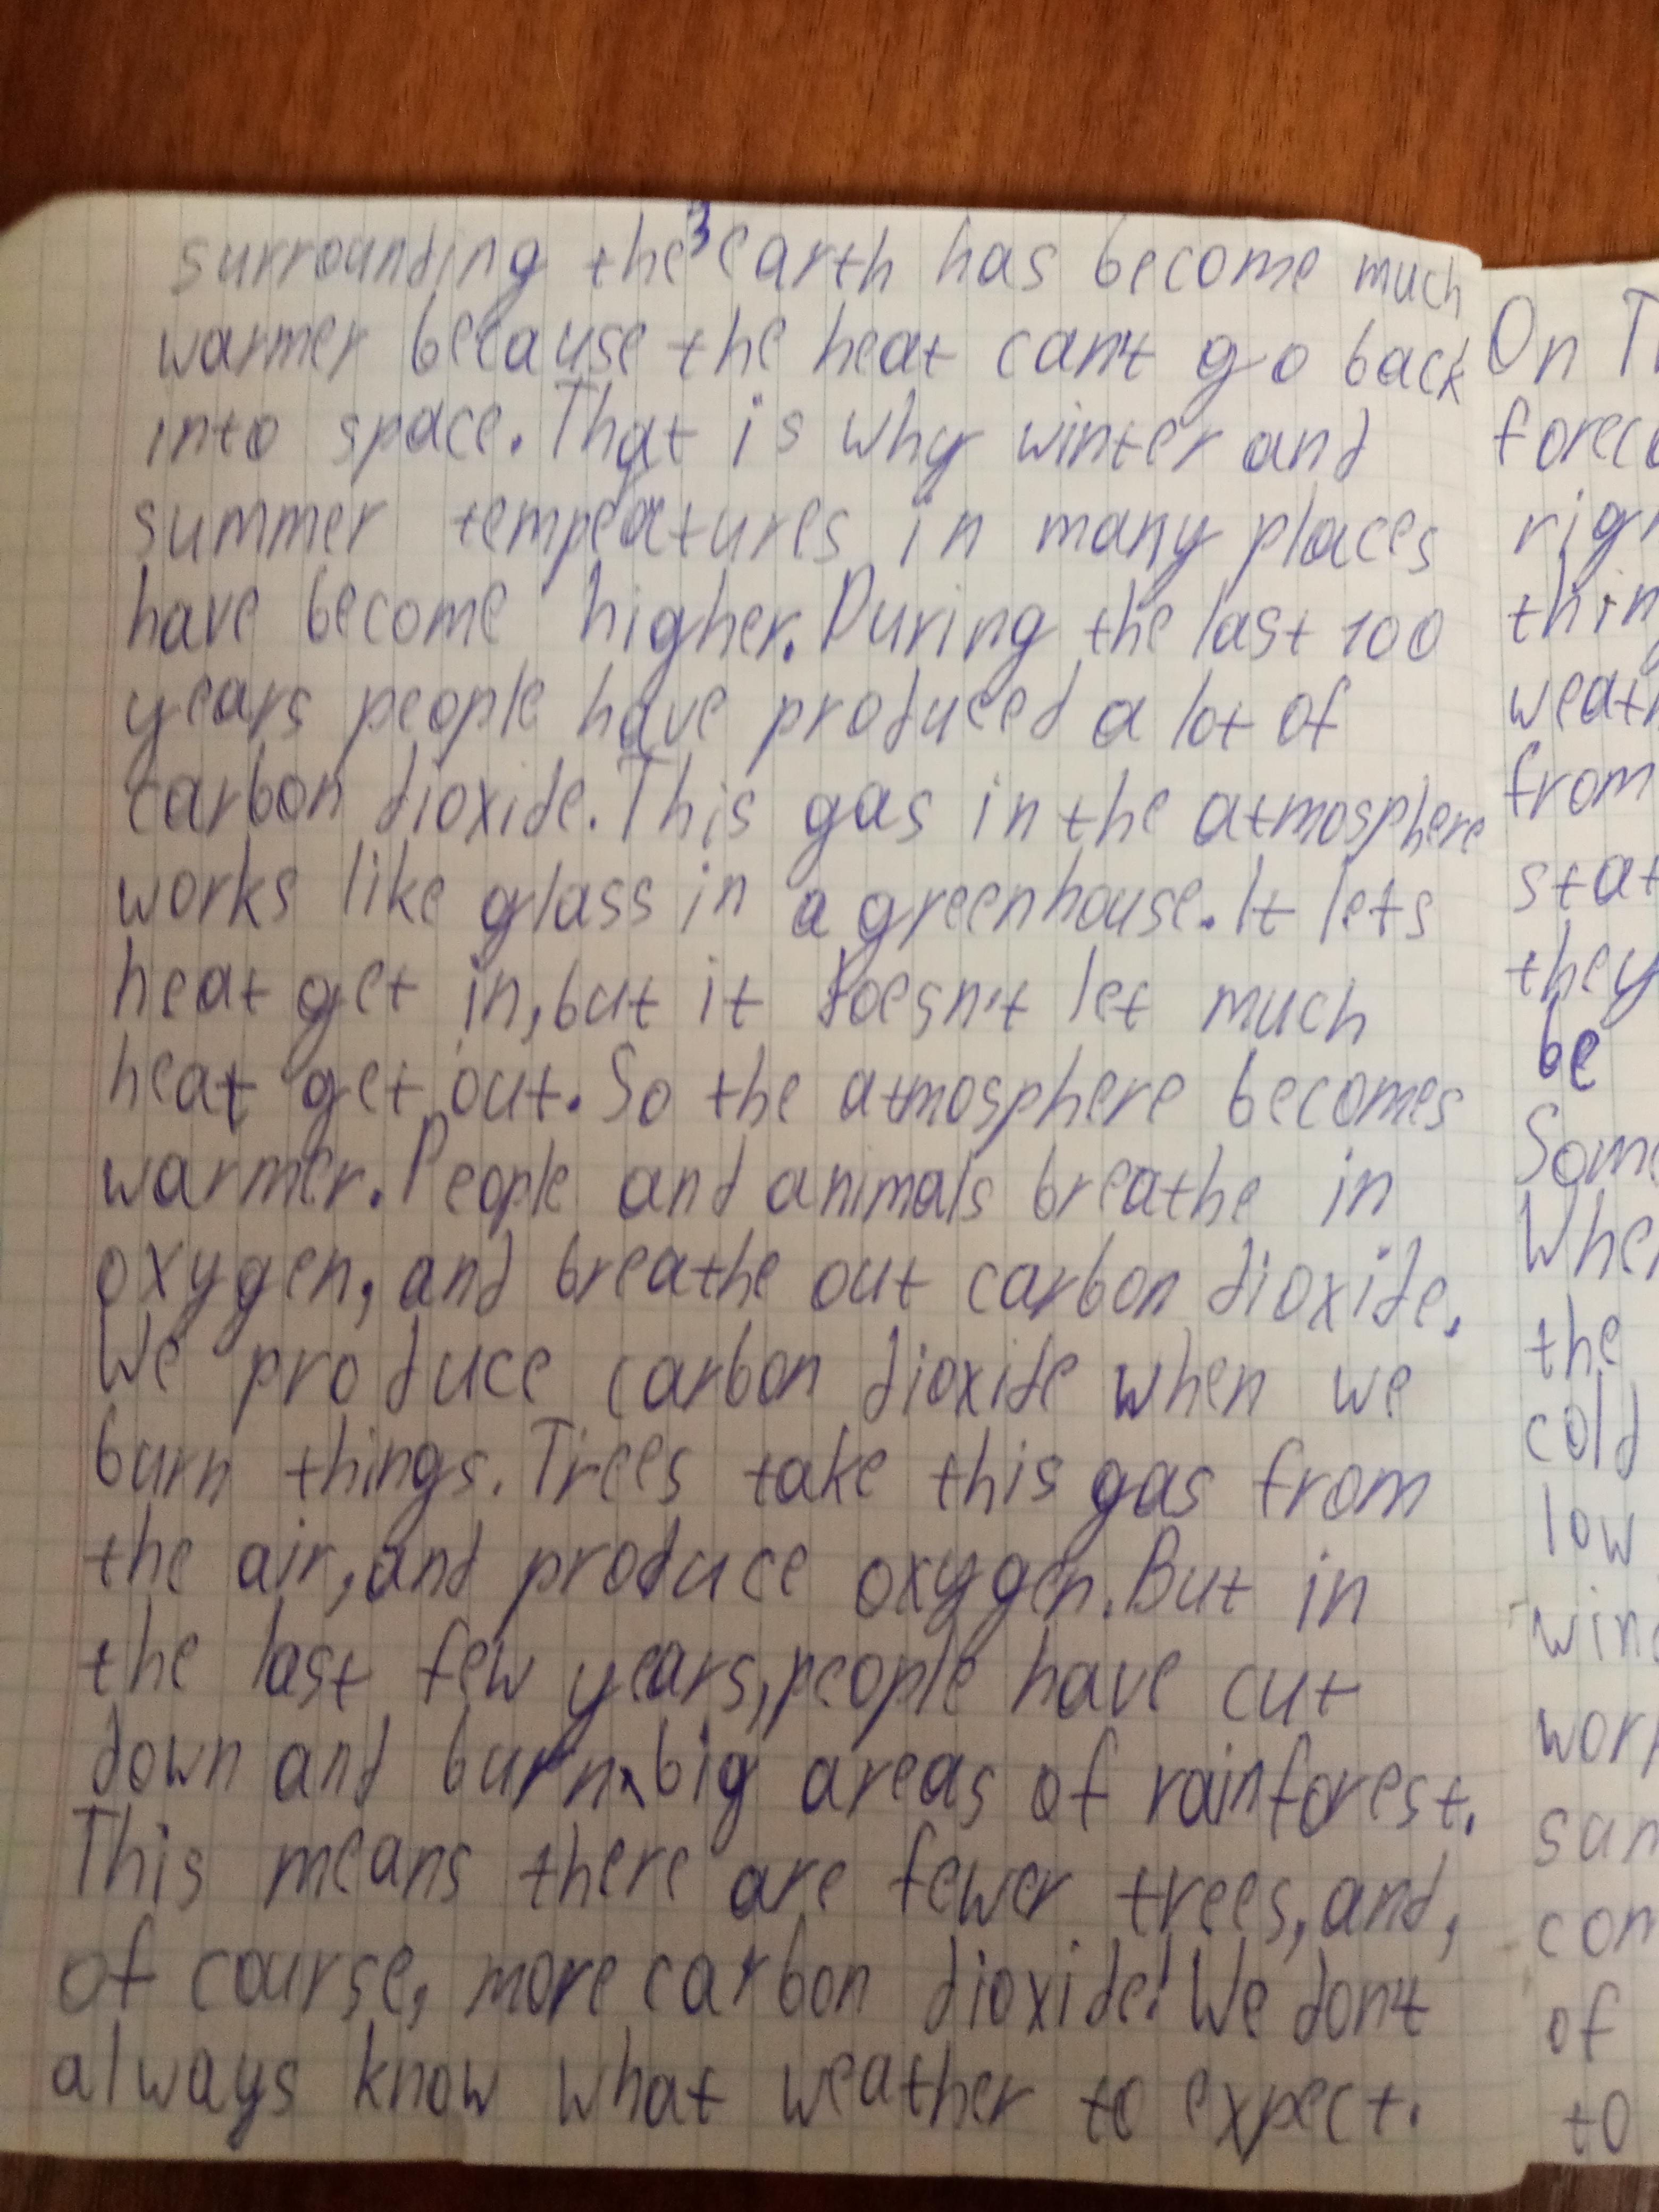 3
surrounding the earth has become much
warmer because the heat can't go back
into space. That is why winter and
summer tempeatures in many places
have become higher. During the last 100
years people have produced a lot of
carbon dioxide. This gas in the atmosphere
works like glass in a greenhouse. It lets
heat get in, but it doesn't let much
heat get out. So the atmosphere becomes
warmer. People and animals breathe in
oxygen, and breathe out carbon dioxide.
We produce carbon dioxide when we
burn things. Trees take this gas from
the air, and produce oxygen. But in
the last few years, people have cut
down and burn big areas of rainforest.
This means there are fewer trees, and,
of course, more carbon dioxide! We don't
always know what weather to expect.
On T
foreca
righ
thin
weath
from
stat
they
be
Some
When
the
cold
low
wind
wor
sam
com
of
to